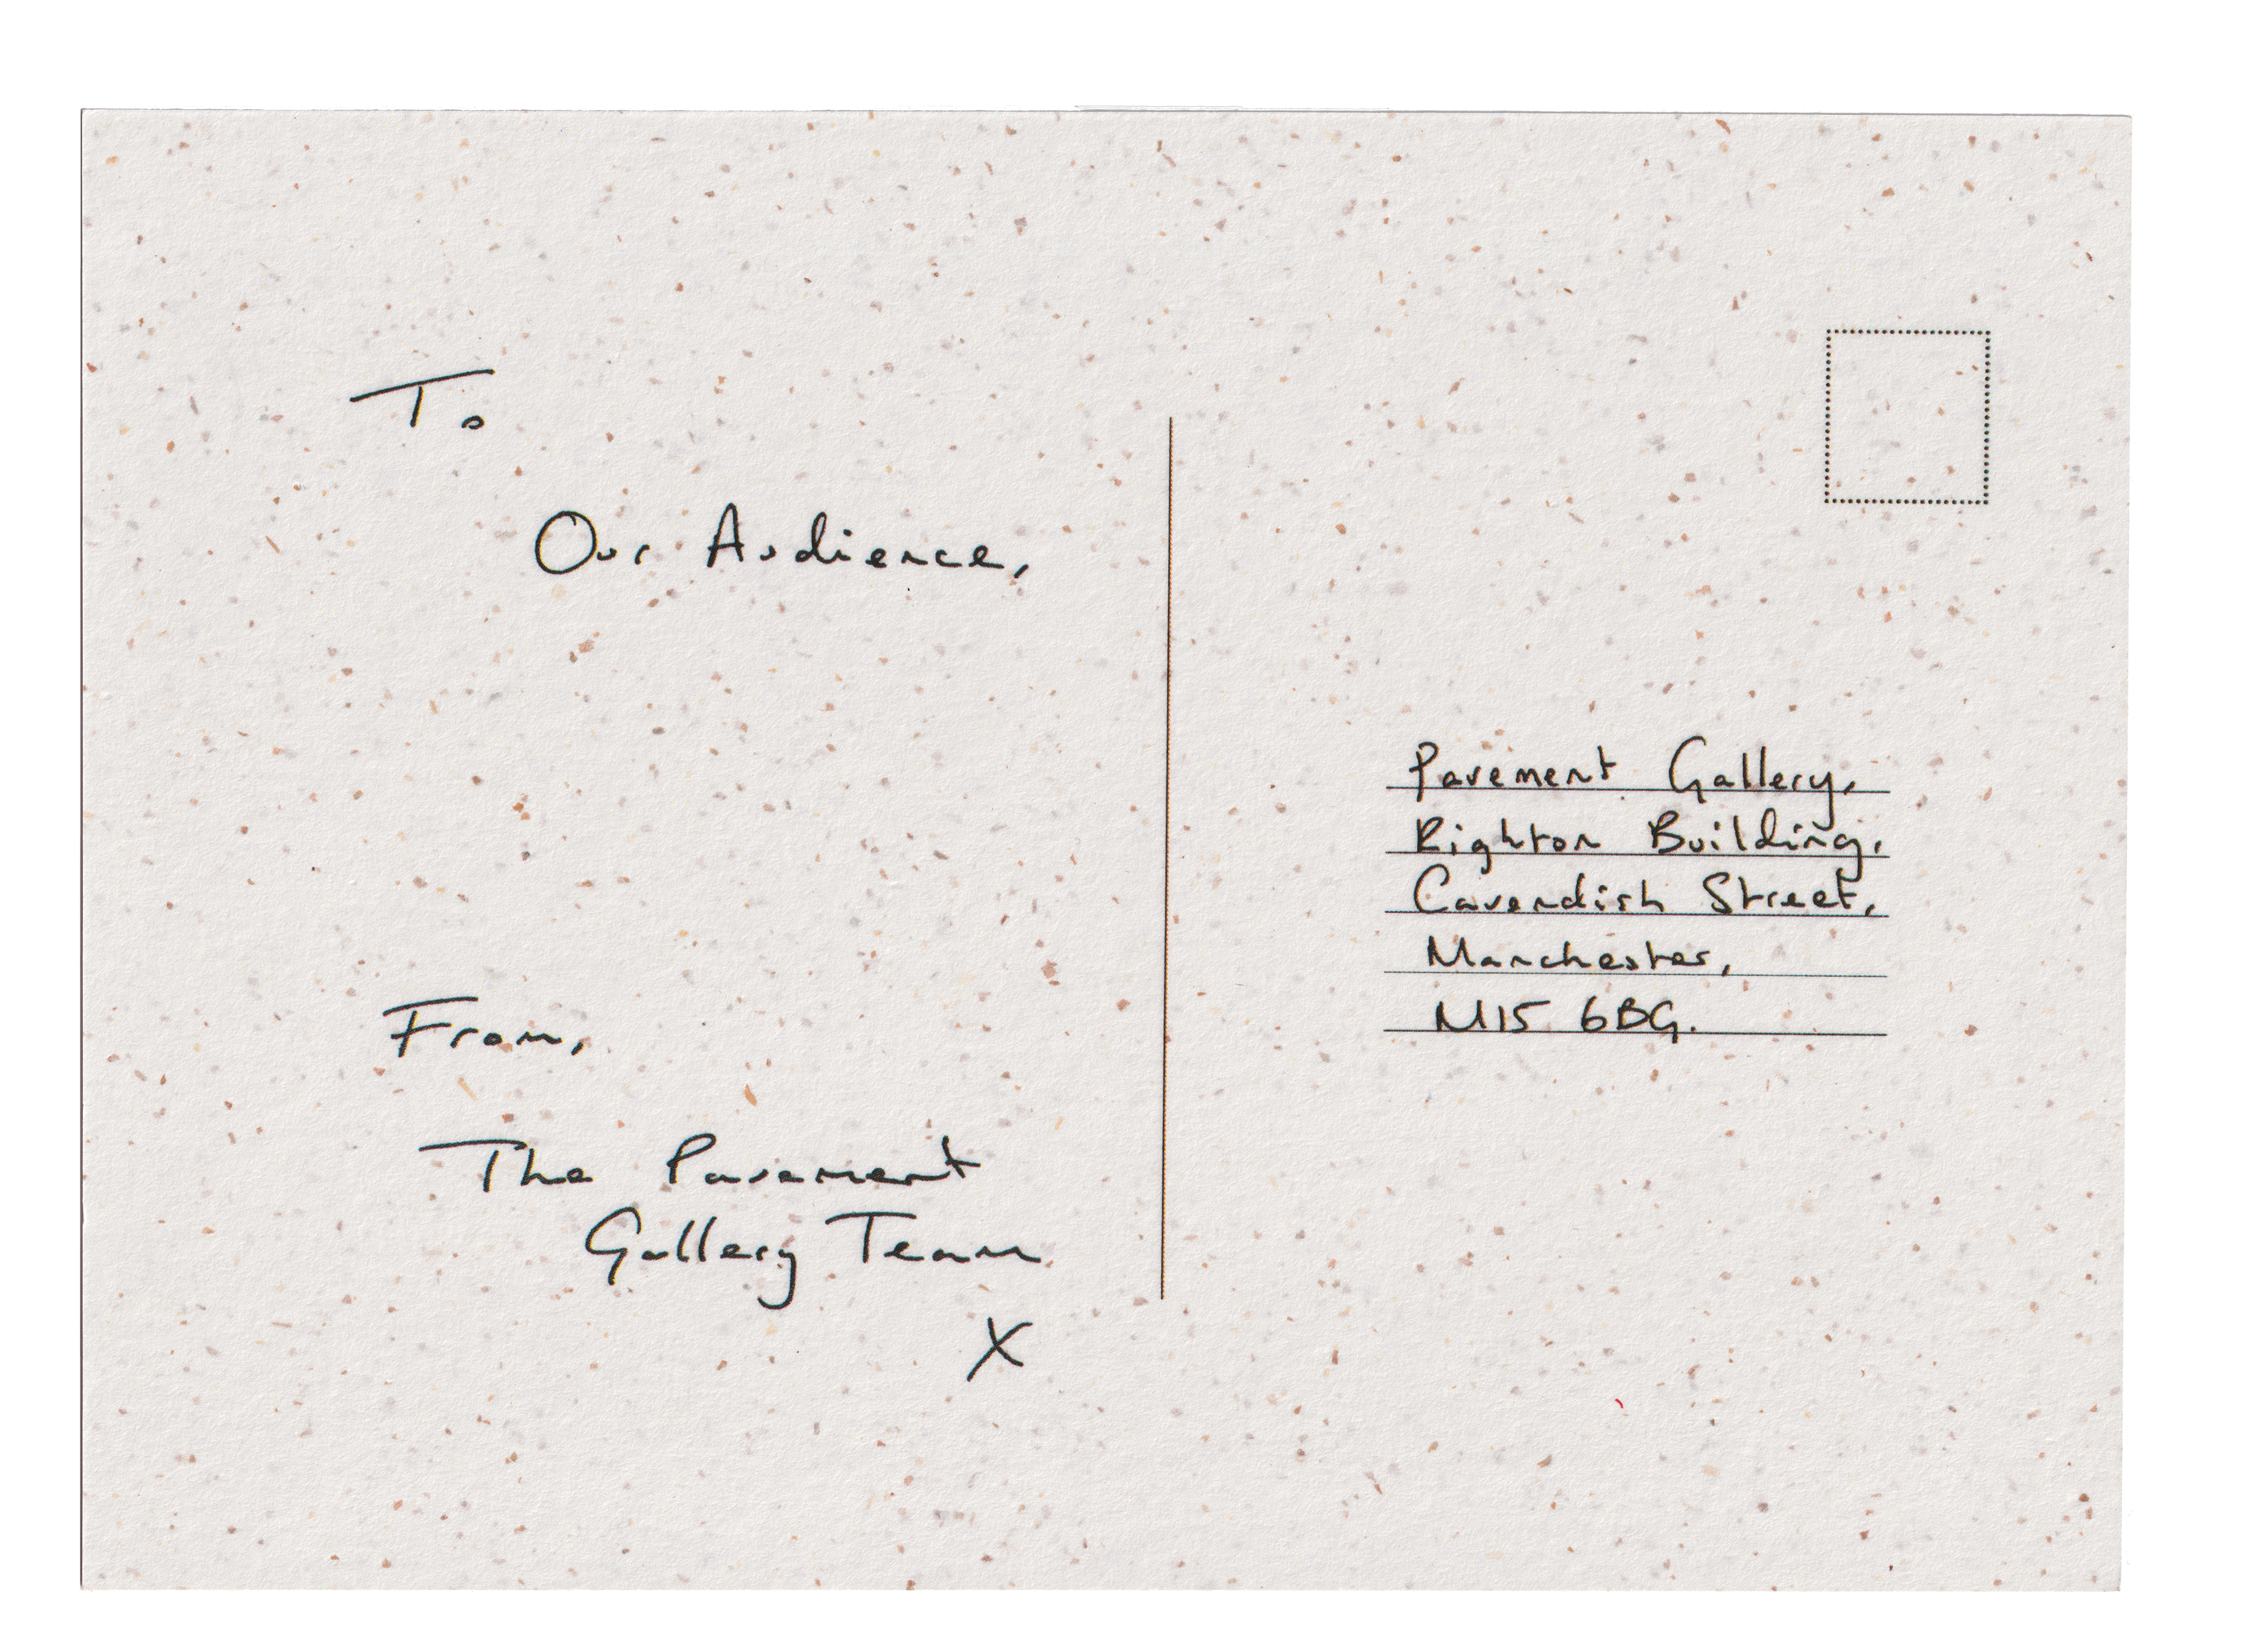 To
Our Audience,
From,
The Pavement
Gallery Team
X
Pavement Gallery,
Righton Building,
Cavendish Street,
Manchester,
M15 6BG.